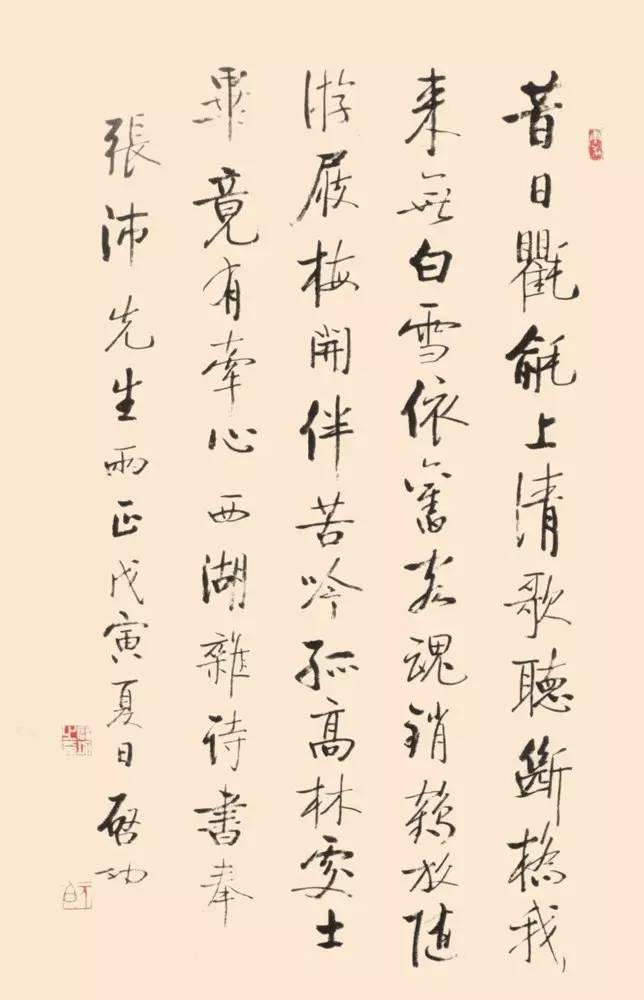 昔日氍毹上清歌聽斷橋我
来無白雪依舊魂銷鶴放随
游屐梅開伴苦吟孤高林處士
畢竟有牽心西湖雜诗書奉
張沛先生雨正戊寅夏日啓功